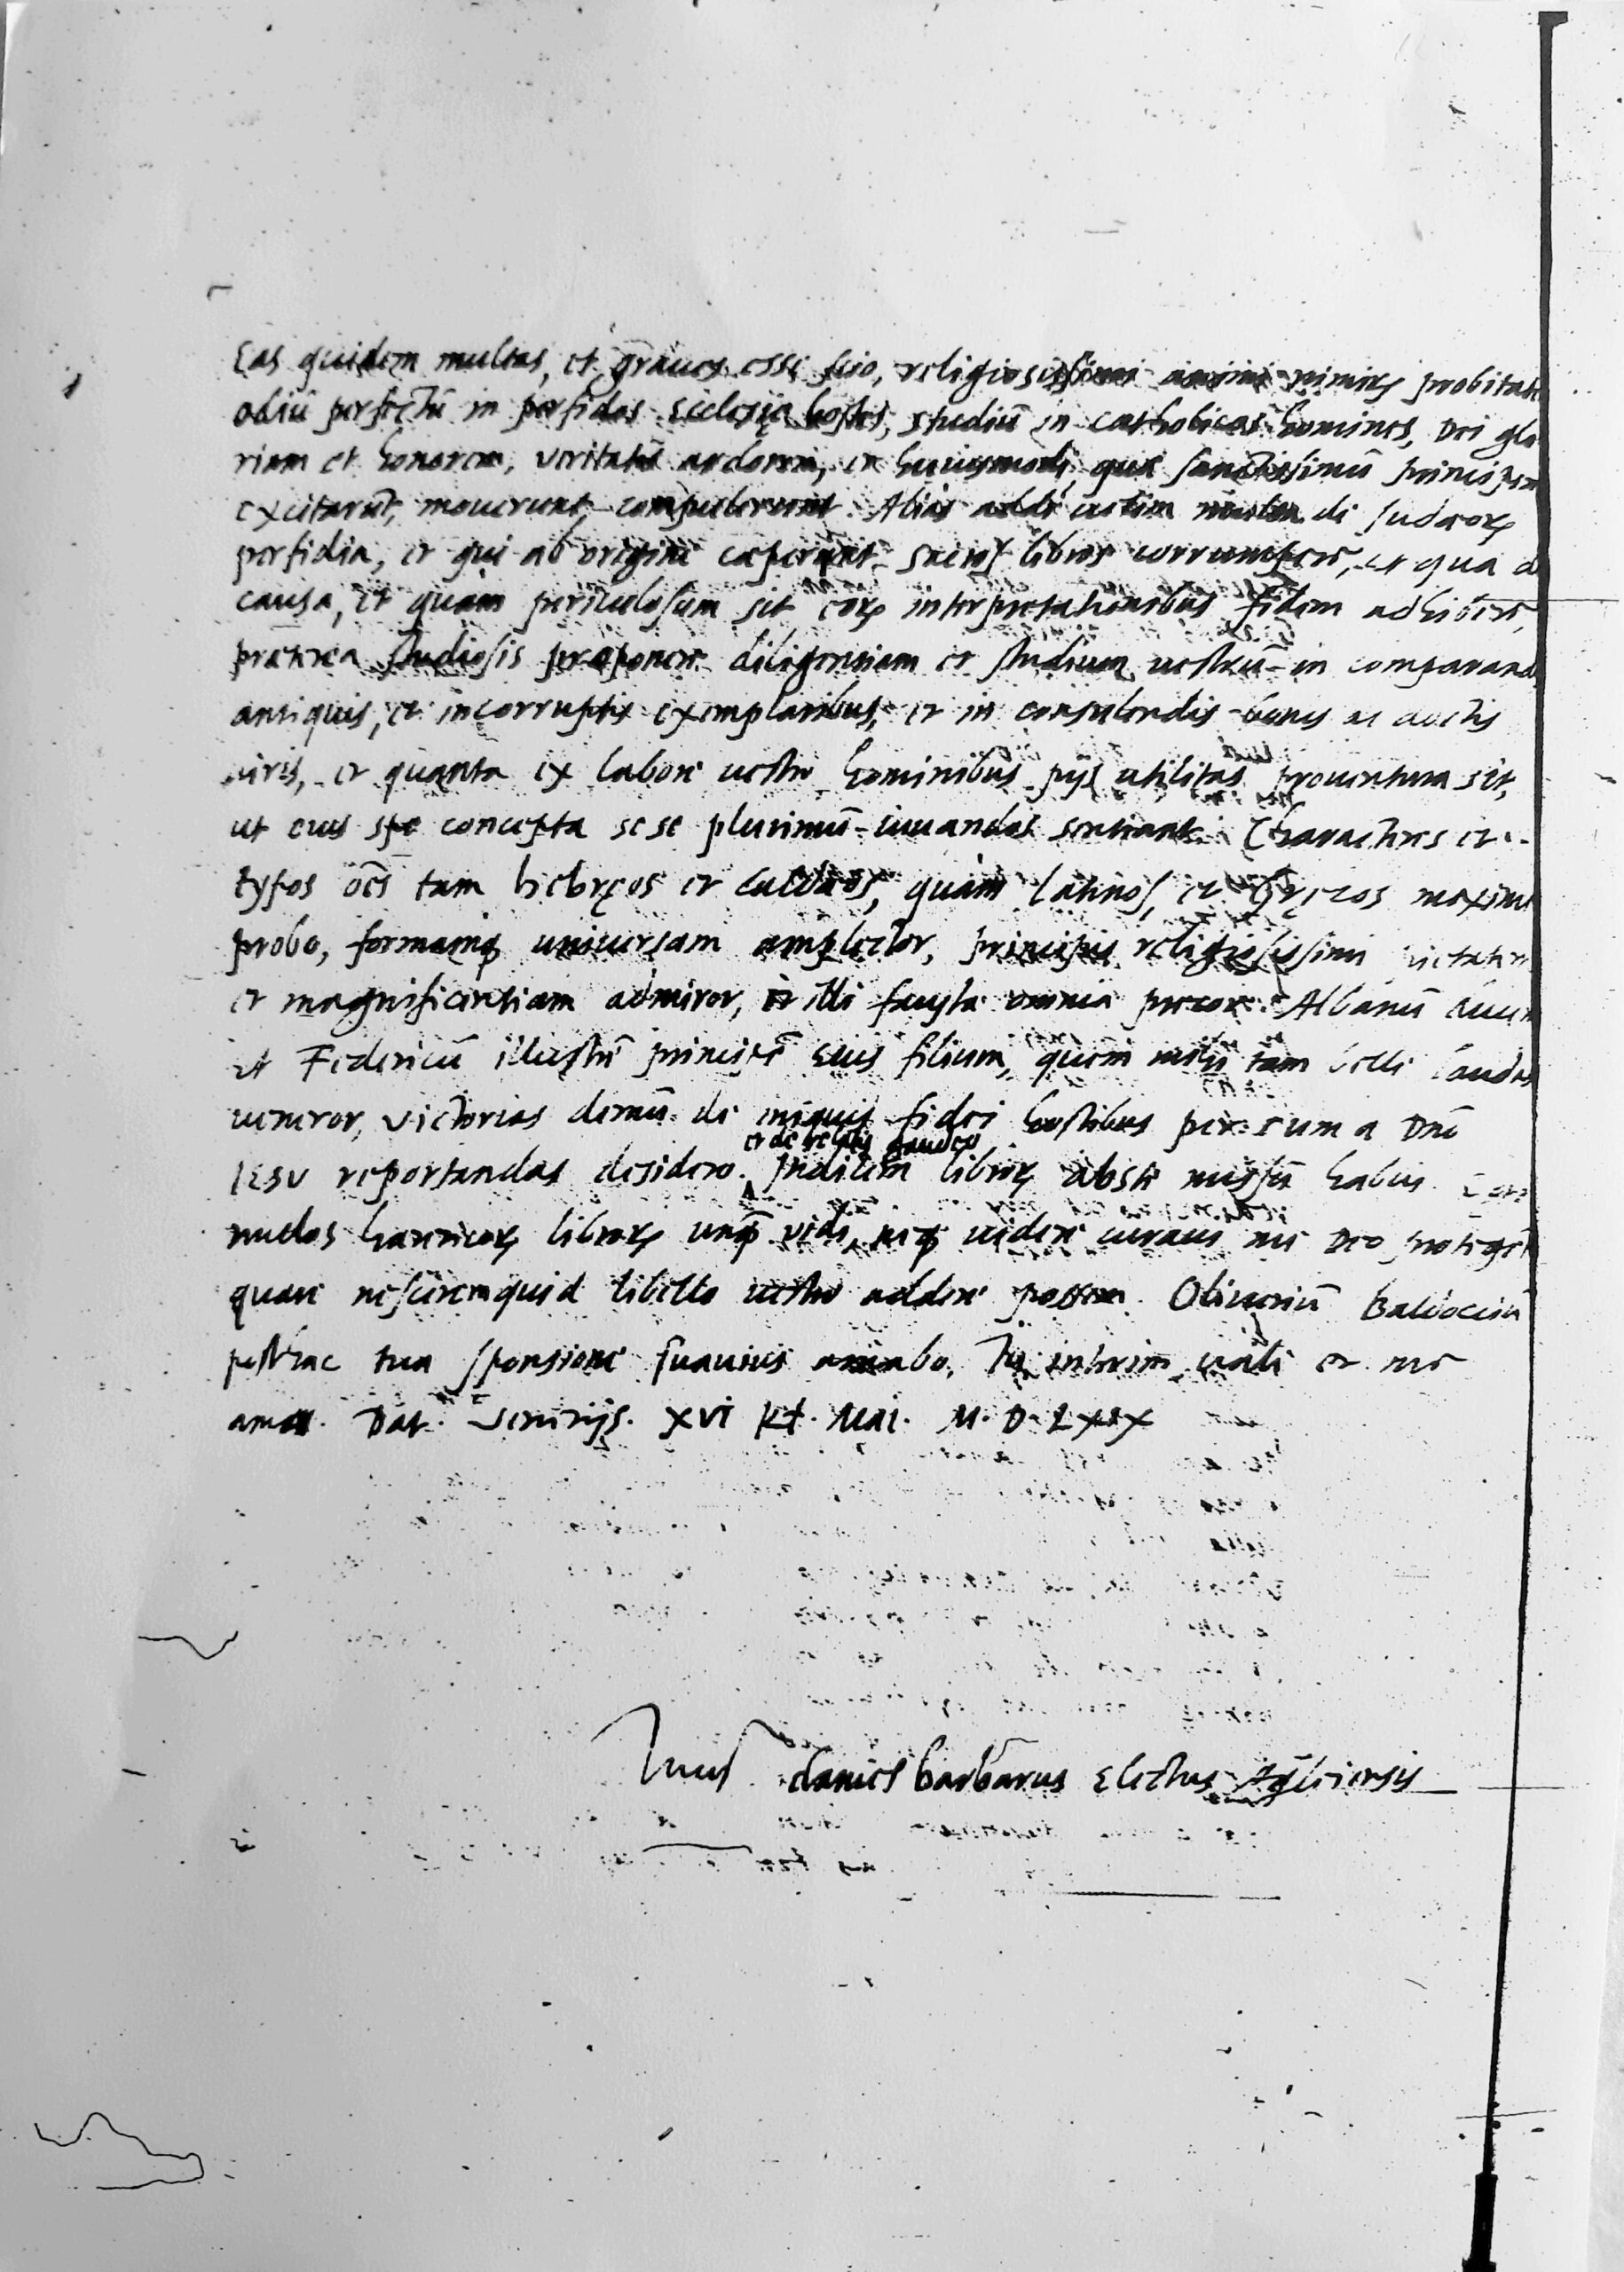 Eas quidem multas, et graues esse scio, religiosissimi animi nimirũ probitatẽ
odiũ perfectũ in perfidos Ecclesię hostes, studiũ in catholicos homines, Dei glo
riam et honorem, veritatis ardorem, et huiusmodi, quę sanctissimũ principem
excitarũt, mouerunt, compulerunt. Alias addi uelim de Judaeorũ
perfidia, et qui ab origine cæperunt sacros libros corrumpere, et qua de
causa, et quam periculosum sit eorũ interpretationibus fidem adhibere,
præterea studiosis proponere diligentiam et studium uestrũ in comparandis
antiquis, et incorruptis exemplaribus, et in consulendis bonis ac doctis
uiris, et quanta ex labore uestro hominibus pijs utilitas prouentura sit,
ut eius spe concepta sese plurimũ iuuandos sentiant. Characteres et
typos oẽs tam hiebręos et caldęos, quàm latinos, et gręcos maxime
probo, formamq̃ uniuersam amplector, principis religiosissimi pietatem
et magnificentiam admiror, et illi fausta omnia precor. Albanũ ducem
et Federicũ illustrẽ principẽ eius filium, quem in tam belli laudes
ueneror, victorias demũ de iniquis fidei hostibus per eum a Dnõ
et de relatis gaudeo
IESV reportandas desidero. Judicem librorũ abs te missũ habui
nullos hæreticorũ librorũ unq̃ vidi, neq̃ uidere curaui me Deo protegente
quare nescirem quid libello uestro addere possem. Oliuerium Baldocciũ
posthac tua sponsione suauius amabo. Tu interim uale et me
ama. Dat. Venetijs. XVI Kl. Mai. M. D. LXIX
Daniel barbarus Electus Aq̃leiensis